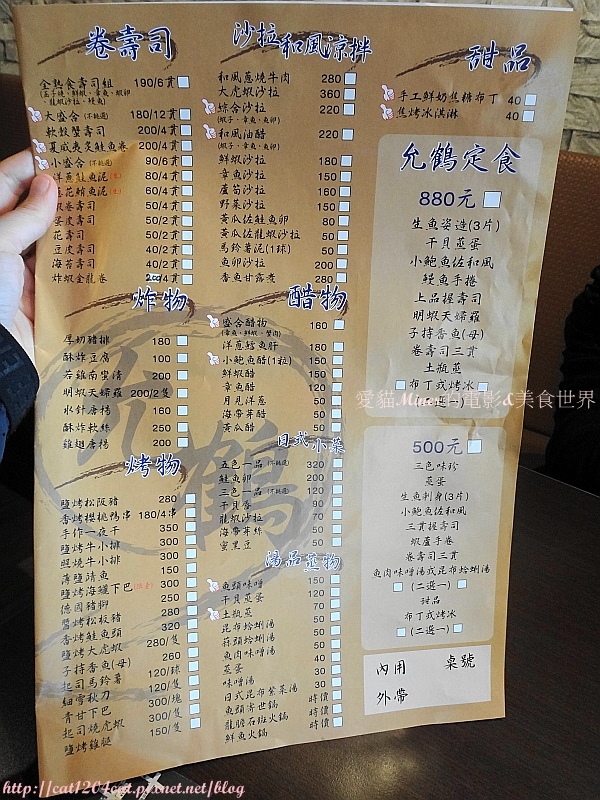 卷壽司
全熟食壽司組 190/6貫
大盛合(不挑選) 180/12貫
軟殼蟹壽司 200/4貫
夏威夷炙鮭魚卷 200/4貫
小盛合(不挑選) 90/6貫
洋蔥鮭魚泥 80/4貫
蔥花鮪魚泥 60/4貫
蝦卷壽司 50/4貫
蛋皮壽司 50/2貫
花壽司 50/2貫
豆皮壽司 40/2貫
海苔壽司 40/2貫
炸蝦金龍卷
炸物
厚切豬排 180
酥炸豆腐 100
若雞南蠻漬 200
明蝦天婦羅 200/2隻
水針唐揚 160
酥炸軟絲 250
雞翅唐揚 200
烤物
鹽烤松阪豬 280
香烤櫻桃鴨串 180/4串
手作一夜干 350
鹽烤牛小排 300
照燒牛小排 300
薄鹽鯖魚 150
鹽烤海鱺下巴 300
德國豬腳 250
醬烤松板豬 280
香烤鮭魚頭 320
鹽烤大虎蝦 280/隻
子持香魚(母) 260
起司馬鈴薯 120/球
細雪秋刀 120/隻
青甘下巴 300/塊
起司燒虎蝦 300/隻
鹽烤雞腿 150/隻
沙拉和風涼拌
和風蔥燒牛肉 280
大虎蝦沙拉 360
綜合沙拉 220
(蝦子、章魚、魚卵)
和風油醋 220
(蝦子、章魚、魚卵)
鮮蝦沙拉 180
章魚沙拉 150
蘆筍沙拉 160
野菜沙拉 150
黃瓜佐鮭魚卵 80
黃瓜佐龍蝦沙拉 50
馬鈴薯泥(1球) 50
魚卵沙拉 200
香魚甘露煮 280
醋物
盛合醋物 160
(章魚、鮮蝦、蟹肉)
洋蔥鱈魚肝 180
小鮑魚醋(1粒) 150
鮮蝦醋 150
章魚醋 120
月見洋蔥 50
海帶芽醋 50
黃瓜醋 50
日式小菜
五色一品(不挑選) 320
鮭魚卵 200
三色一品(不挑選) 120
干貝香 90
龍蝦沙拉 50
海帶芽絲 50
蜜黑豆 50
湯品蒸物
魚頭味噌 150
干貝蒸蛋 120
土瓶蒸 70
昆布蛤蜊湯 50
蒜頭蛤蜊湯 50
魚肉味噌湯 50
蒸蛋 40
味噌湯 30
日式昆布紫菜湯 30
魚頭寄世鍋 時價
龍膽石斑火鍋 時價
鮮魚火鍋 時價
甜品
手工鮮奶焦糖布丁 40
焦烤冰淇淋 40
允鶴定食
880元
生魚姿造(3片)
干貝蒸蛋
小鮑魚佐和風
鰻魚手捲
上品握壽司
明蝦天婦羅
子持香魚(母)
卷壽司三貫
土瓶蒸
布丁或烤冰
(二選一)
500元
三色味珍
蒸蛋
生魚刺身(3片)
小鮑魚佐和風
三貫握壽司
蝦蘆手卷
卷壽司三貫
魚肉味噌湯或昆布蛤蜊湯
(二選一)
甜品
布丁或烤冰
(二選一)
內用 桌號
外帶
允鶴
愛貓Mimi的電影&美食世界
http://cat1204cat.pixnet.net/blog